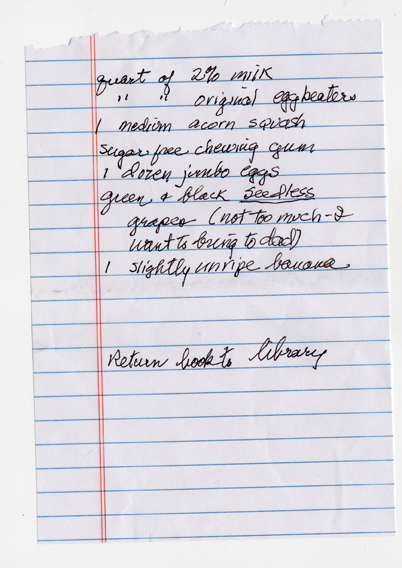 quart of 2% milk
" " original eggbeaters
1 medium acorn squash
sugar free chewing gum
1 dozen jumbo eggs
green & black seedless
grapes (not too much - I
want to bring to dad)
1 slightly unripe banana
Return book to library